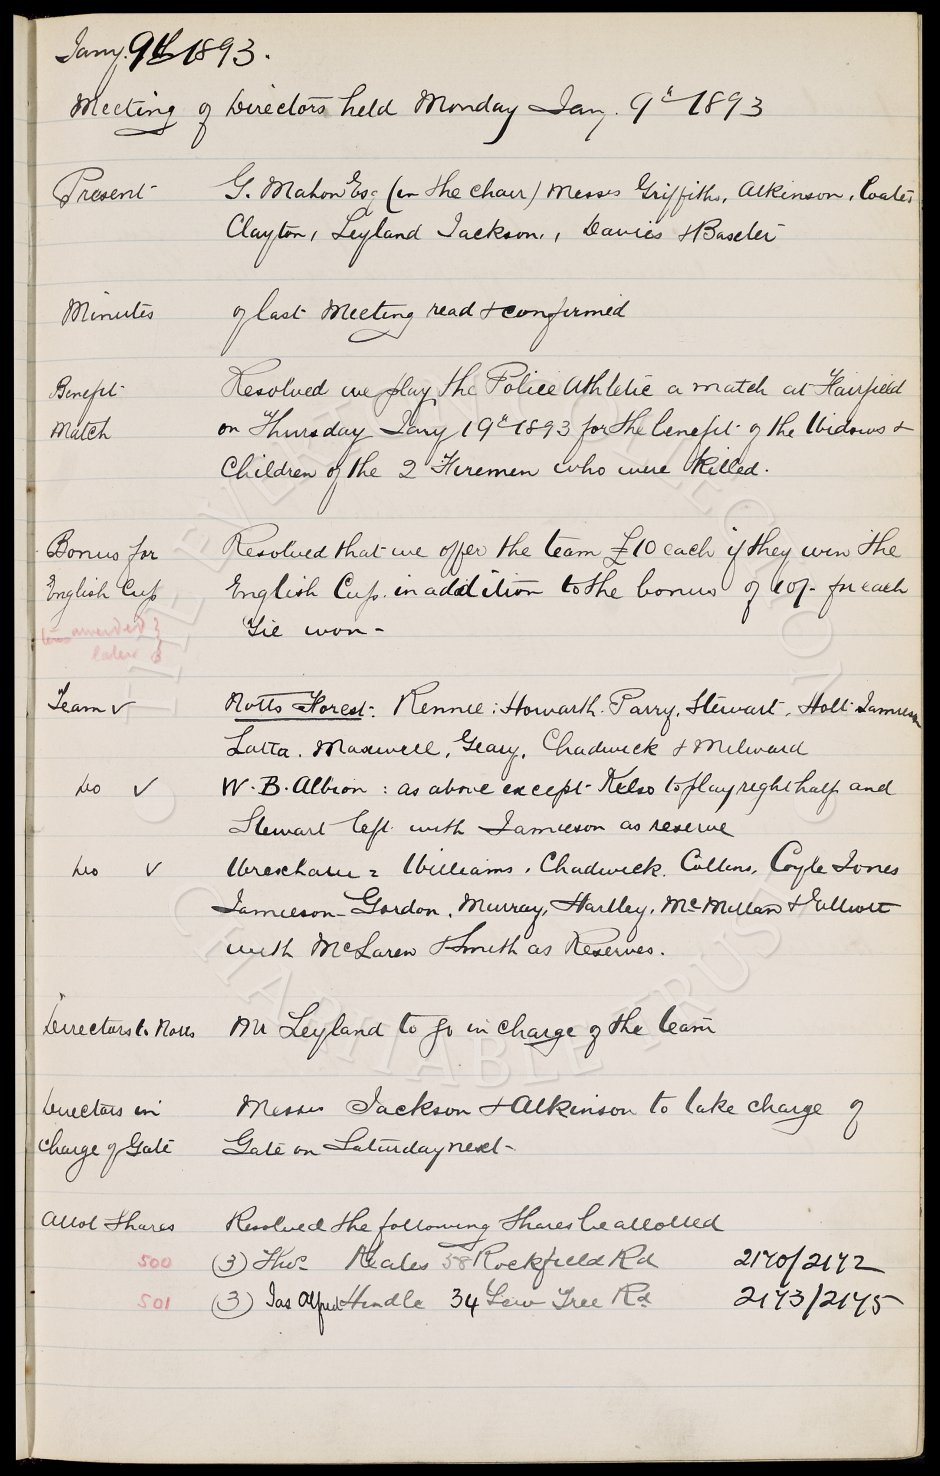 Jany. 9th 1893.
Meeting of Directors held Monday Jany. 9th 1893
Present G. Mahon Esq (in the chair) Messrs Griffiths, Atkinson, Coates
Clayton, Leyland Jackson, Davies & Baxter
Minutes of last Meeting read & confirmed
Benefit Resolved we play the Police Athletic a match at Fairfield
Match on Thursday Jany 19th 1893 for the benefit of the Widows &
Children of the 2 Firemen who were Killed.
Bonus for Resolved that we offer the team £10 each if they win the
English Cup English Cup. in addition to the bonus of 10/- for each
Tie won -
amended
later
Team ✓ Notts Forest: Rennie: Howarth. Parry, Stewart, Holt Jamieson
Latta. Maxwell, Geary, Chadwick & Milward
Do ✓ W. B. Albion: as above except Kelso to play right half and
Stewart left with Jamieson as reserve
Do ✓ Wrexham = Williams, Chadwick, Collins, Coyle Jones
Jamieson Gordon, Murray, Hartley, McMillan & Elliott
with McLaren & Smith as Reserves.
Directors to Notts Mr Leyland to go in charge of the team
Directors in Messrs Jackson & Atkinson to take charge of
Charge of Gate Gate on Saturday next -
Allot Shares Resolved the following Shares be allotted
500 (3) Thos. Keates 58 Rockfield Rd 2170/2172
501 (3) Jas Alfred Hindle 34 Yew Tree Rd 2173/2175
THE EVERTON COLLECTION
CHARITABLE TRUST